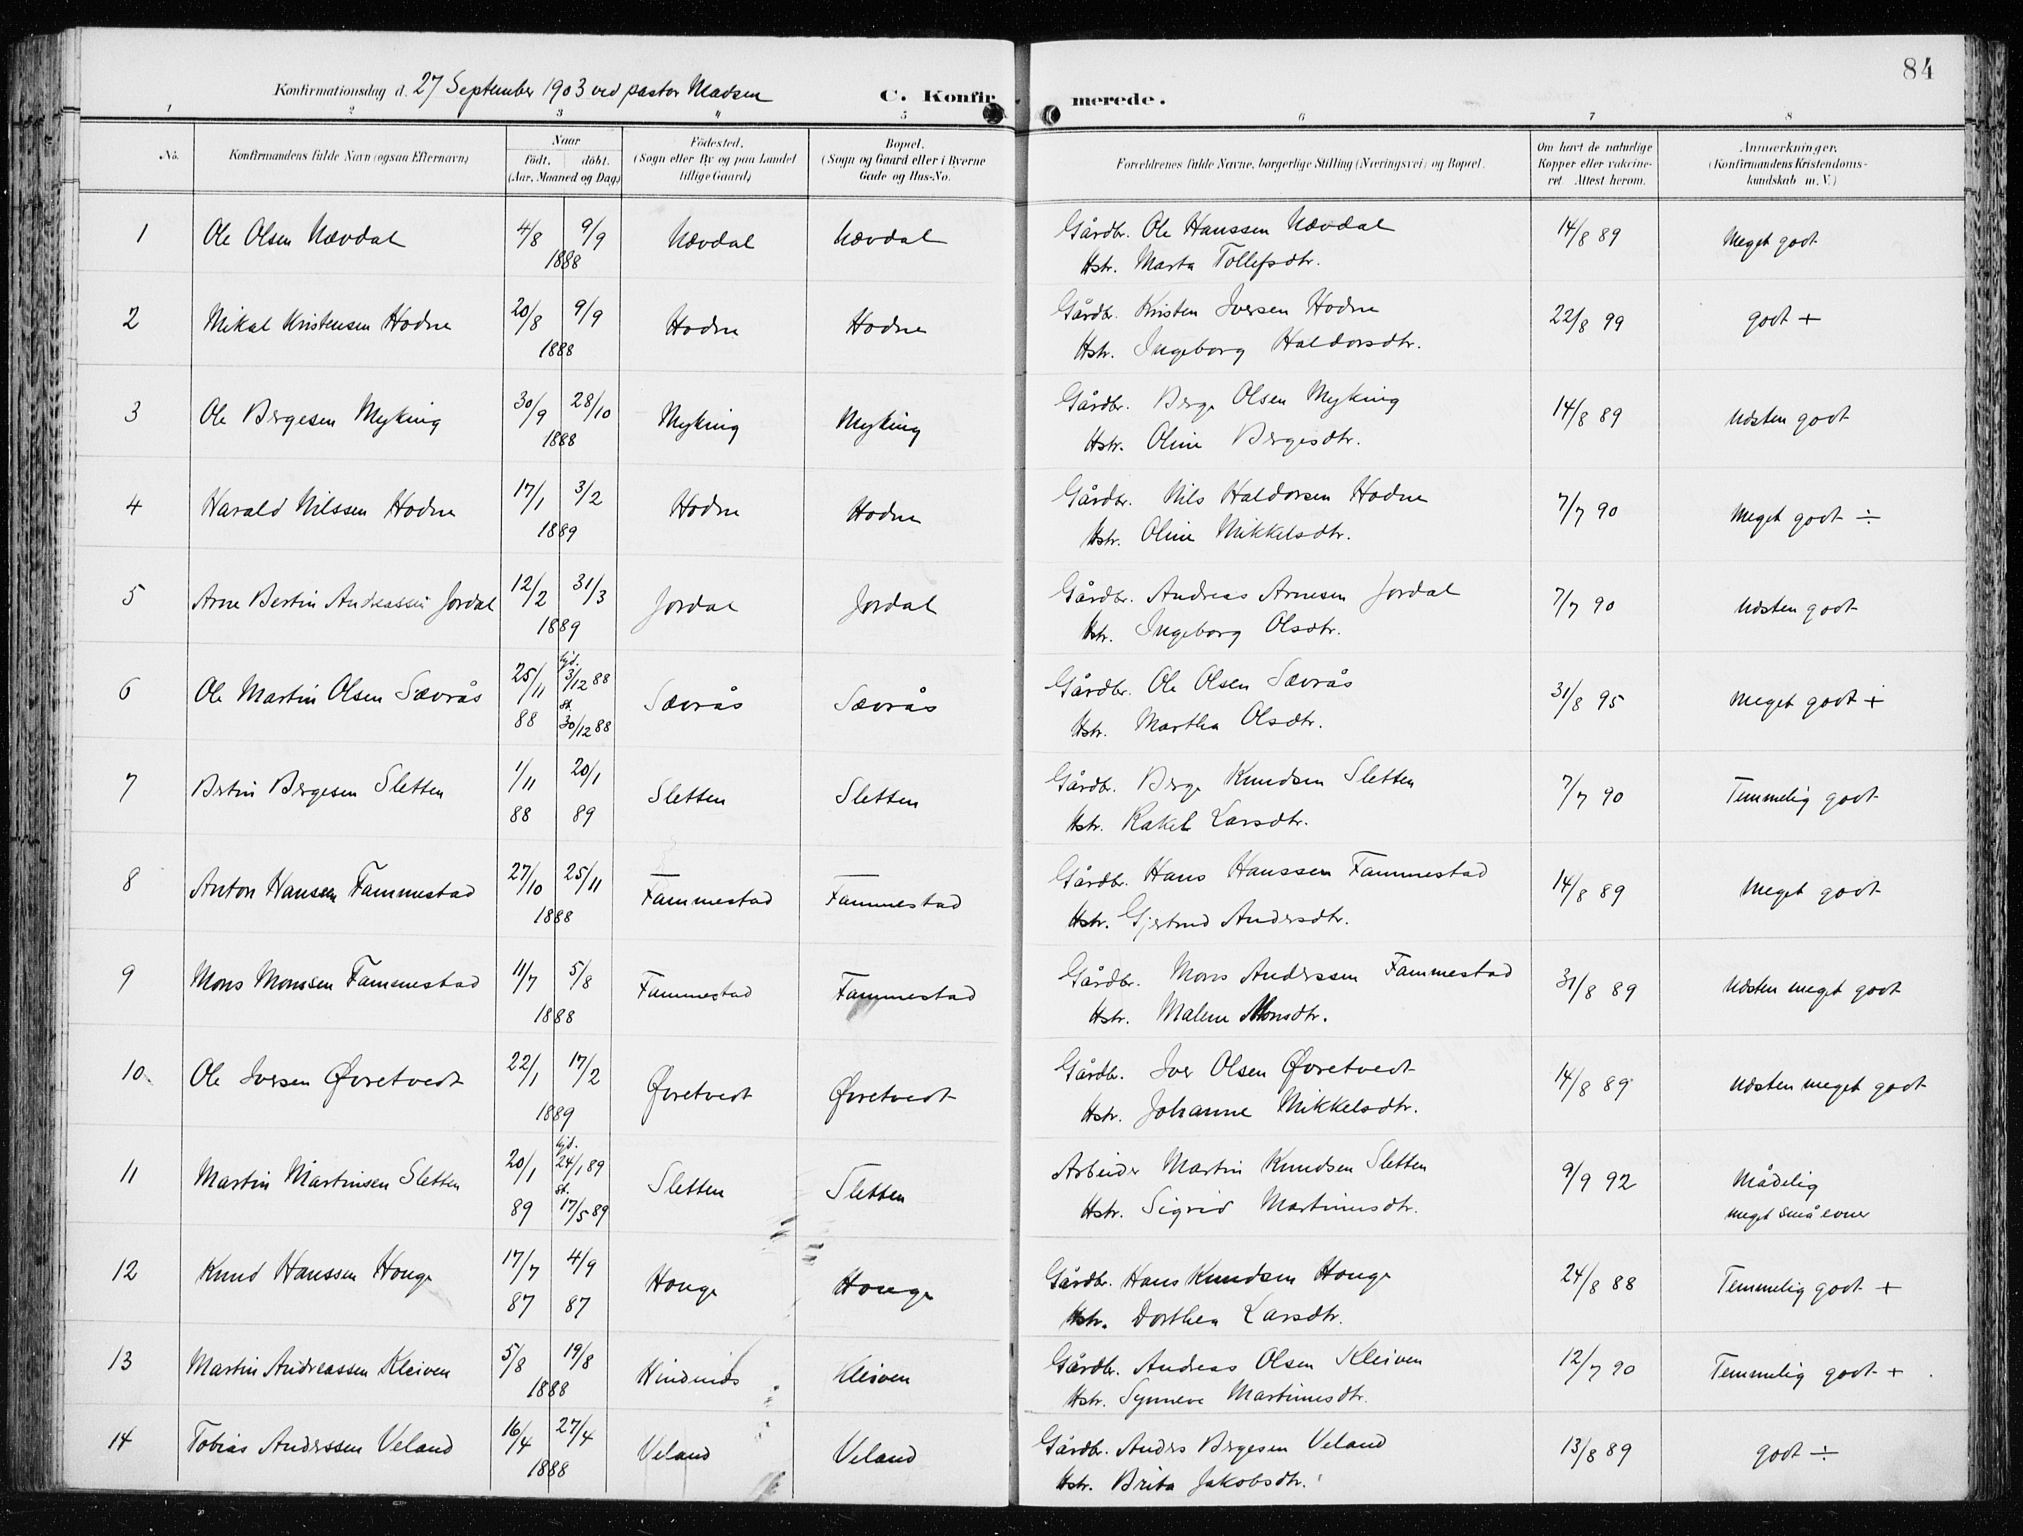 84
Konfirmationsdag d. 27 September 1903 ved pastor Madsen
C. Konfirmerede.
1 2 3 4 5 6 7 8
No.
Konfirmandens fulde Navn (ogsaa Efternavn)
Naar
født. døbt.
(Aar, Maaned og Dag)
Fødested.
(Sogn eller By og paa Landet
tillige Gaard)
Bopæl.
(Sogn og Gaard eller i Byerne
Gade og Hus-No.
Forældrenes fulde Navne, borgerlige Stilling (Næringsvei) og Bopæl.
Om havt de naturlige
Kopper eller vakcine-
ret. Attest herom.
Anmærkninger.
(Konfirmandens Kristendoms-
kundskab m. V.)
1 Ole Olsen Nævdal 4/8 9/9 Nævdal Nævdal Gårdbr. Ole Hanssen Nævdal 14/8 89 Meget godt
1888 Hstr. Marta Tollefsdtr.
2 Mikal Kristensen Hodne 20/8 9/9 Hodne Hodne Gårdbr. Kristen Iversen Hodne 22/8 99 godt +
1888 Hstr. Ingeborg Haldorsdtr.
3 Ole Bergesen Myking 30/9 28/10 Myking Myking Gårdbr. Berge Olsen Myking 14/8 89 Næsten godt
1888 Hstr. Oline Bergesdtr.
4 Harald Nilssen Hodne 17/1 3/2 Hodne Hodne Gårdbr. Nils Haldorsen Hodne 7/7 90 Meget godt ÷
1889 Hstr. Oline Mikkelsdtr.
5 Arne Bertin Andreassen Jordal 12/2 31/3 Jordal Jordal Gårdbr. Andreas Arnesen Jordal 7/7 90 Næsten godt
1889 Hstr. Ingeborg Olsdtr.
6 Ole Martin Olsen Sævrås 25/11 88 hjd. 3/12 88 st. 30/12 88 Sævrås Sævrås Gårdbr. Ole Olsen Sævrås 31/8 95 Meget godt +
Hstr. Martha Olsdtr.
7 Bertin Bergesen Sletten 1/11 20/1 Sletten Sletten Gårdbr. Berge Knudsen Sletten 7/7 90 Temmelig godt
88 89 Hstr. Rakel Larsdtr.
8 Anton Hansen Fammestad 27/10 25/11 Fammestad Fammestad Gårdbr. Hans Hanssen Fammestad 14/8 89 Meget godt
1888 Hstr. Gjertrud Andersdtr.
9 Mons Monssen Fammestad 11/7 5/8 Fammestad Fammestad Gårdbr. Mons Anderssen Fammestad 31/8 89 Næsten meget godt
1888 Hstr. Malene Monsdtr.
10 Ole Iversen Øvretvedt 22/1 17/2 Øvretvedt Øvretvedt Gårdbr. Iver Olsen Øvretvedt 14/8 89 Næsten meget godt
1889 Hstr. Johanne Mikkelsdtr.
11 Martin Martinsen Sletten 20/1 89 hjd. 24/1 89 st. 17/5 89 Sletten Sletten Arbeider Martin Knudsen Sletten 9/9 92 Mådelig
Hstr. Sigrid Martinusdtr. meget små evner
12 Knud Hanssen Houge 17/7 4/9 Houge Houge Gårdbr. Hans Knudsen Houge 24/8 88 Temmelig godt +
87 87 Hstr. Dorthea Larsdtr.
13 Martin Andreassen Kleiven 5/8 19/8 Hindenis Kleiven Gårdbr. Andreas Olsen Kleiven 12/7 90 Temmelig godt +
1888 Hstr. Synneve Martinusdtr.
14 Tobias Anderssen Veland 16/4 27/4 Veland Veland Gårdbr. Anders Bergesen Veland 13/8 89 godt ÷
1888 Hstr. Brita Jakobsdtr.